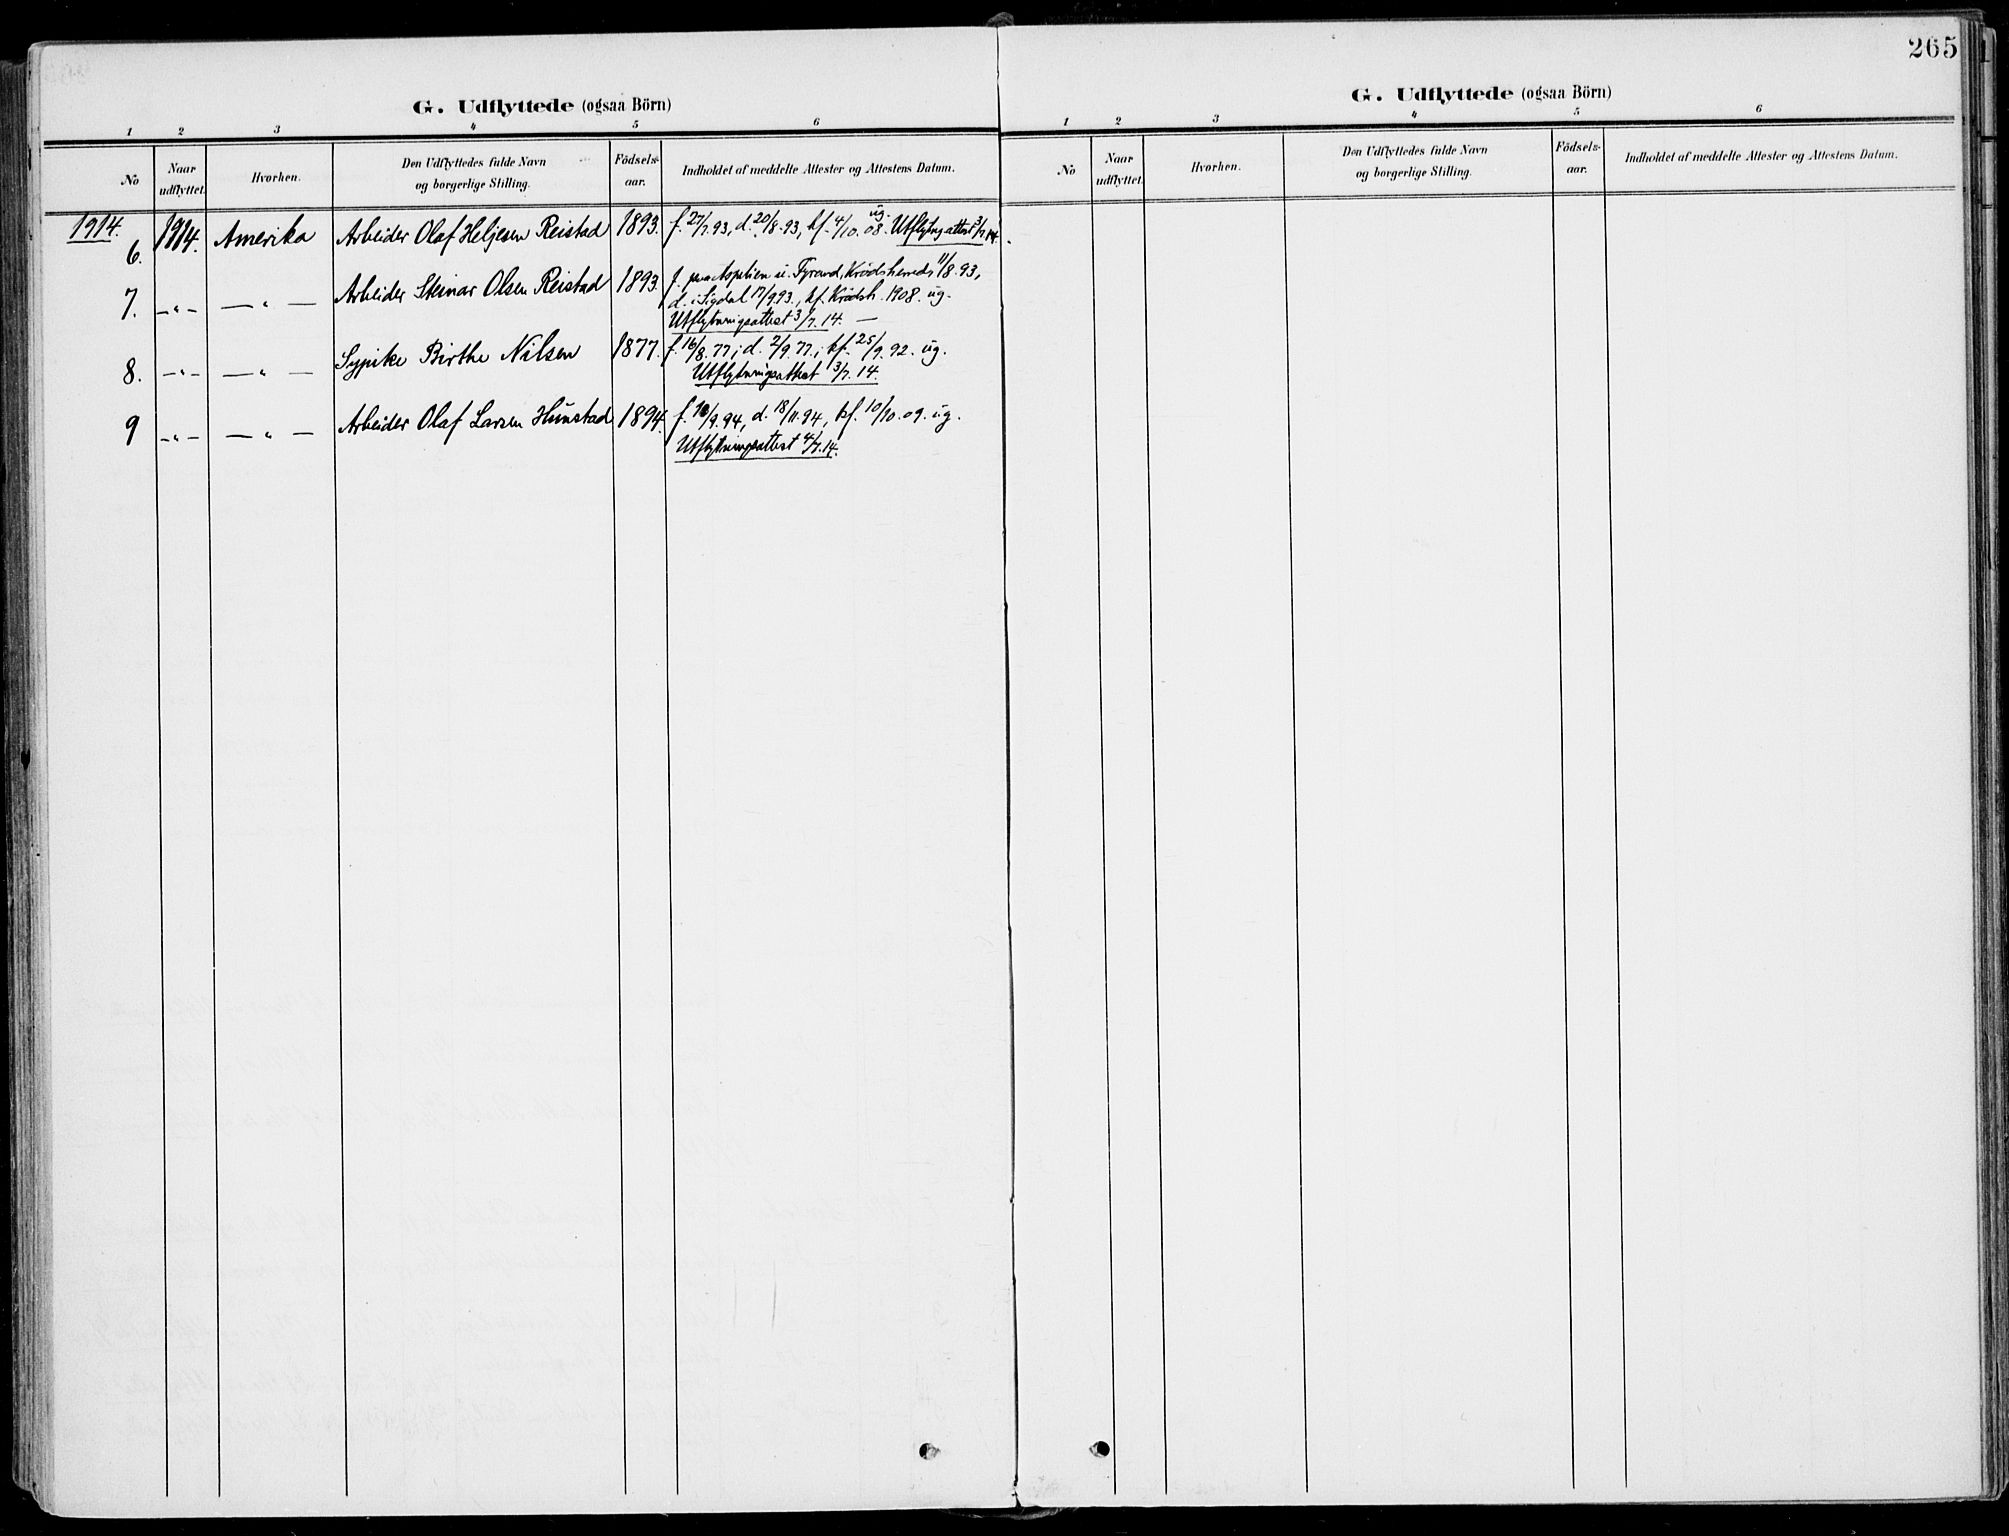 265
G. Udflyttede (ogsaa Börn)
1 2 3 4 5 6
No Naar udflyttet. Hvorhen. Den Udflyttedes fulde Navn og borgerlige Stilling. Födsels-aar. Indholdet af meddelte Attester og Attestens Datum.
1914.
6. 1914. Amerika Arbeider Olaf Heljesen Reistad 1893. f. 27/7.93, d. 20/8.93, kf. 4/10.08. ug. Utflytng attest 3/7 14.
7. -"- — " — Arbeider Steinar Olsen Reistad 1893. f. paa u. Fyrand, Krödsherred 11/8.93,
d. i Sigdal 17/9.93., kf. Krödsh. 1908. ug.
Utflytningsattest 3/7. 14. —
8. -"- — " — Sypike Birthe Nilsen 1877. f. 16/8.77; d. 2/9.77.; kf. 25/9.92. ug.
Utflytningsattest 3/7. 14.
9 -"- — " — Arbeider Olaf Larsen Hunstad 1894. f. 10/9.94, d. 18/11.94, kf. 10/10.09. ug.
Utflytningsattest 4/7.14.
G. Udflyttede (ogsaa Börn)
1 2 3 4 5 6
No Naar udflyttet. Hvorhen. Den Udflyttedes fulde Navn og borgerlige Stilling. Födsels-aar. Indholdet af meddelte Attester og Attestens Datum.